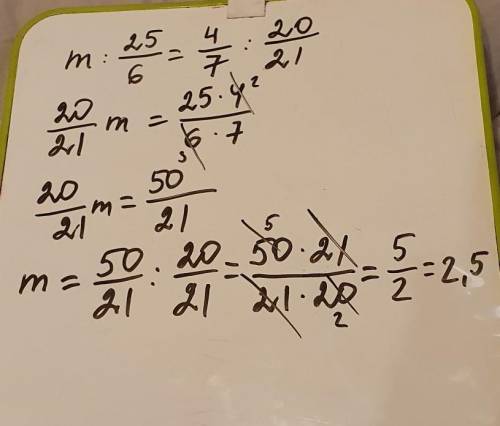 m : 25/6 = 4/7 : 20/21
20/21 m = 25 · 4 2 / 6 3 · 7
20/21 m = 50/21
m = 50/21 : 20/21 = 50 5 · 21 / 21 · 20 2 = 5/2 = 2,5